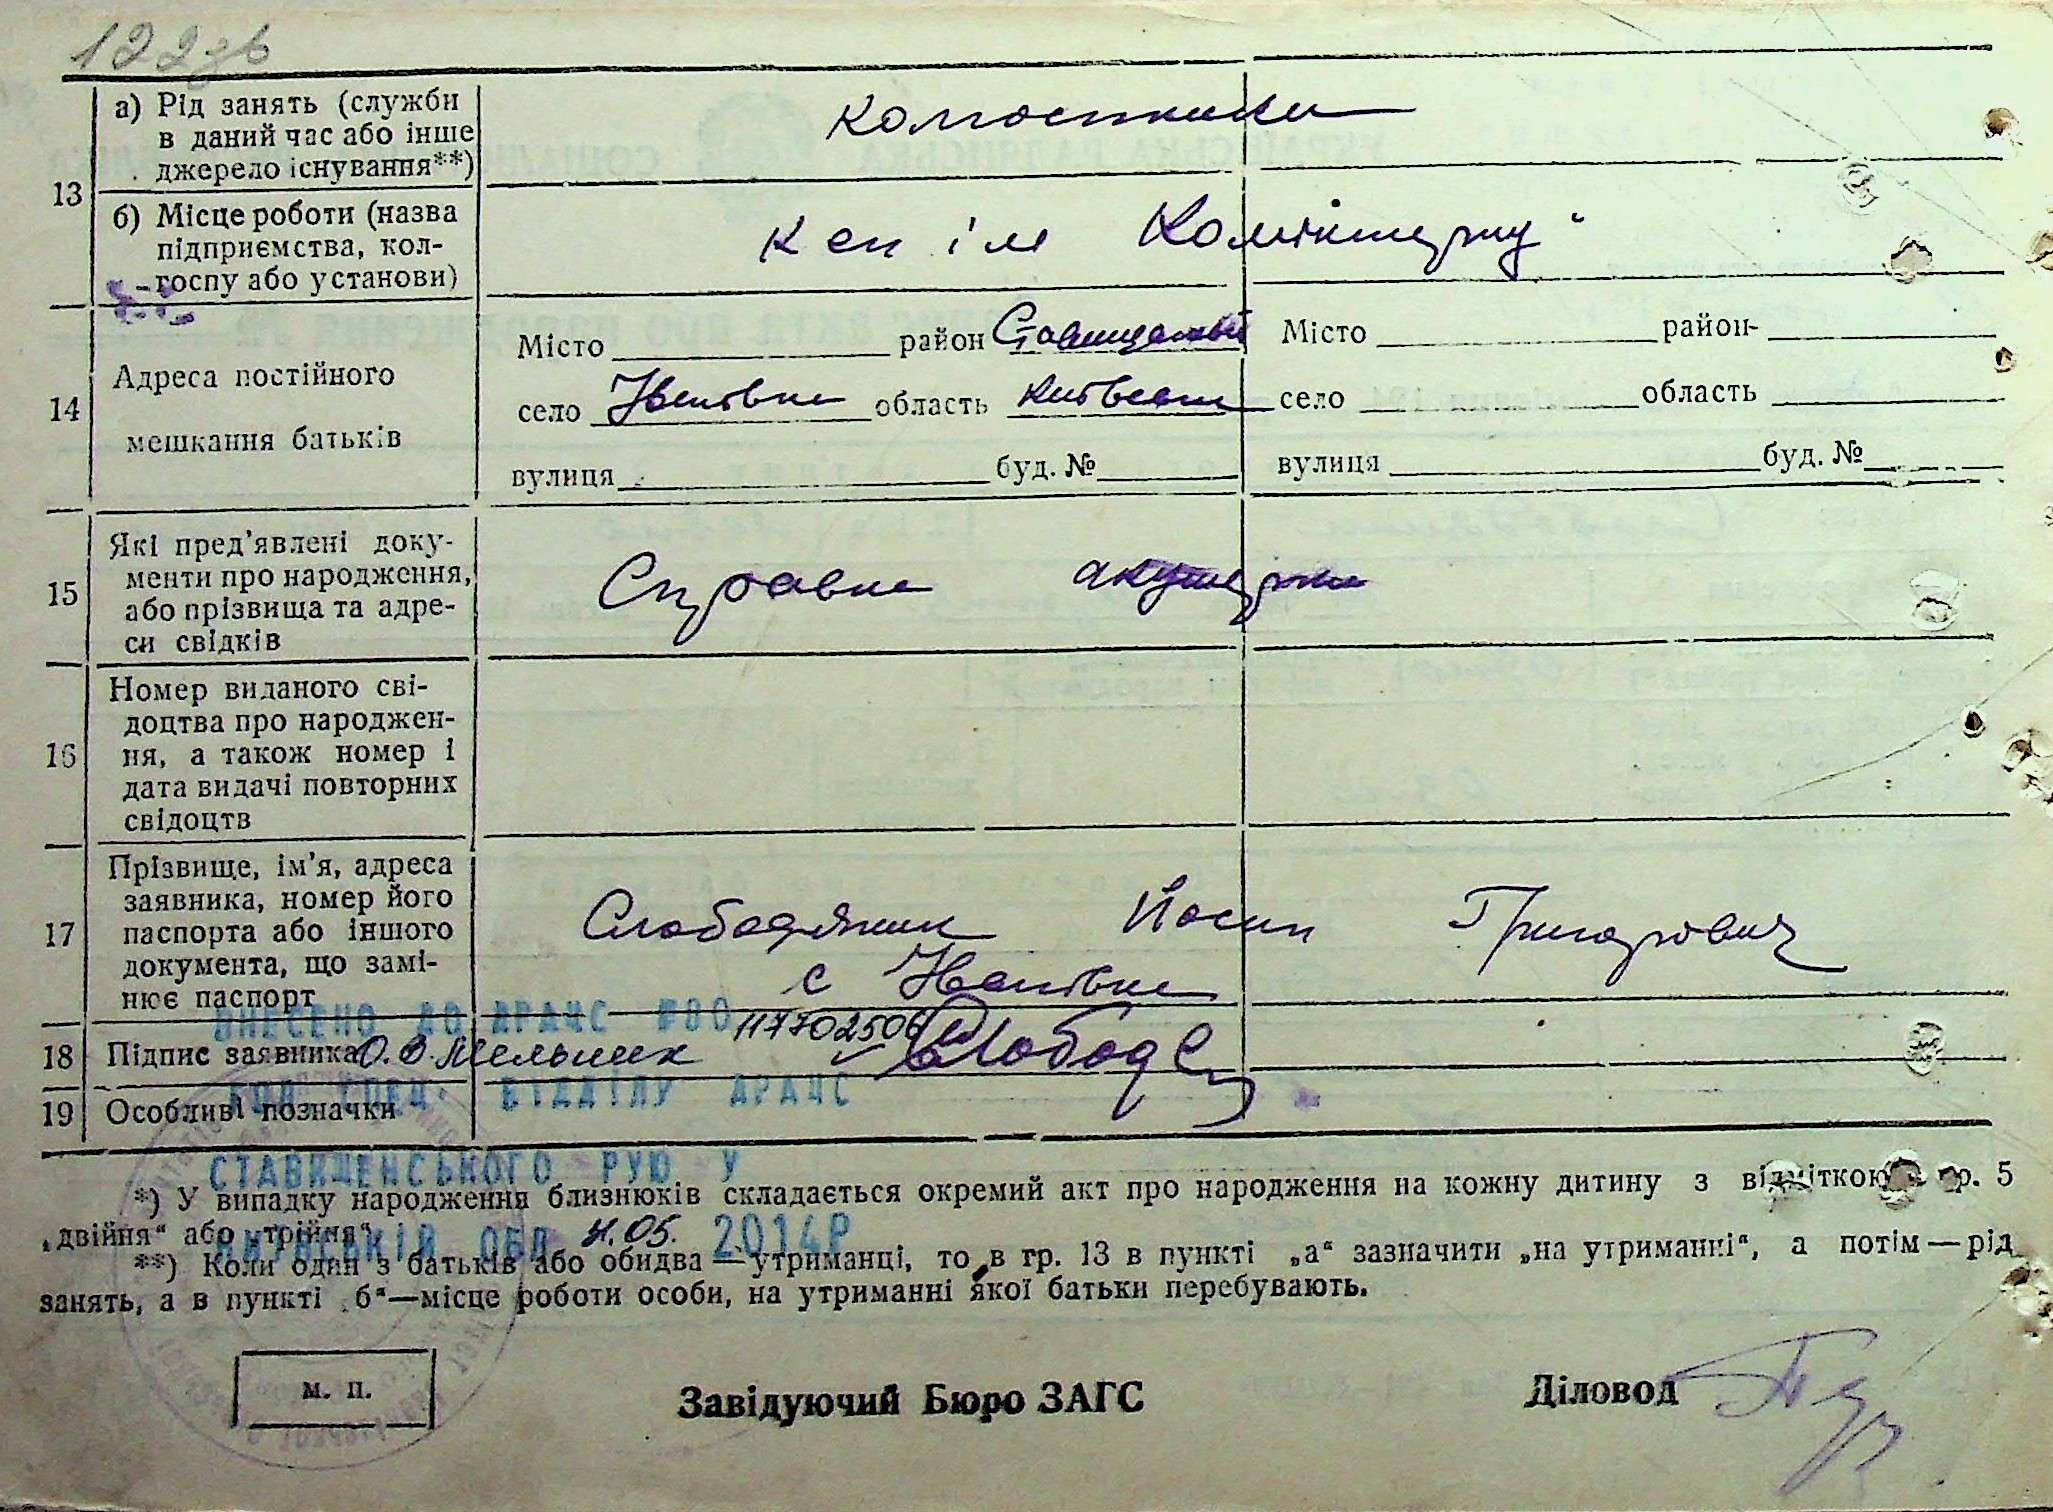 122зв
13
а) Рід занять (служби
в даний час або інше
джерело існування**)
колгоспники
б) Місце роботи (назва
підприємства, кол-
госпу або установи)
ім Комінтерну"
14
Адреса постійного
мешкання батьків
Місто район Ставищанський Місто район-
село область Київська село область
вулиця буд. № вулиця буд. №
15
Які пред'явлені доку-
менти про народження,
або прізвища та адре-
си свідків
Справка акушерки
16
Номер виданого сві-
доцтва про народжен-
ня, а також номер і
дата видачі повторних
свідоцтв
17
Прізвище, ім'я, адреса
заявника, номер його
паспорта або іншого
документа, що замі-
нює паспорт
Слободяник Йосип Григорович
с
ВНЕСЕНО ДО ДРАЦС №00 117702506
18 Підпис заявника О. В. Мельник
СПЕЦ. ВІДДІЛУ ДРАЦС
19 Особливі позначки
СТАВИЩЕНСЬКОГО РУЮ У
*) У випадку народження близнюків складається окремий акт про народження на кожну дитину з відміткою в гр. 5
„двійня“ або „трійня“
КИЇВСЬКІЙ ОБЛ 05. 2014Р
**) Коли один з батьків або обидва — утриманці, то в гр. 13 в пункті „а“ зазначити „на утриманні“, а потім — рід
занять, а в пункті „б“—місце роботи особи, на утриманні якої батьки перебувають.
м. п.
Завідуючий Бюро ЗАГС
Діловод